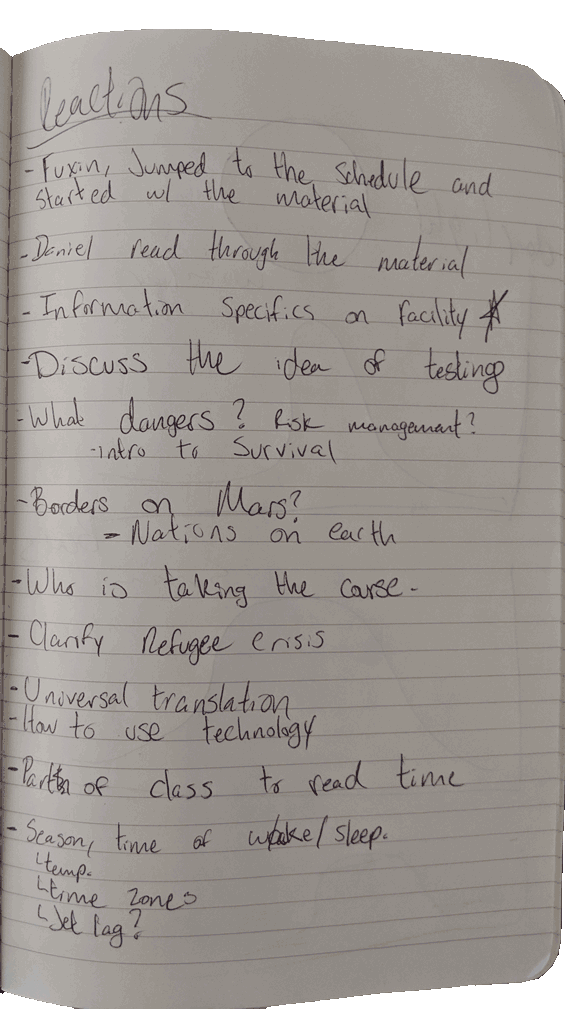 Reactions
- Fuxin, Jumped to the schedule and
started w/ the material
- Daniel read through the material
- Information specifics on facility ☆
- Discuss the idea of testing
- What dangers? Risk management?
- intro to Survival
- Borders on Mars?
- Nations on earth
- Who is taking the corse.
- Clarify Refugee crisis
- Universal translation
- How to use technology
- Part of class to read time
- Season, time of wake/sleep.
↳ temp.
↳ time zones
↳ Jet lag?